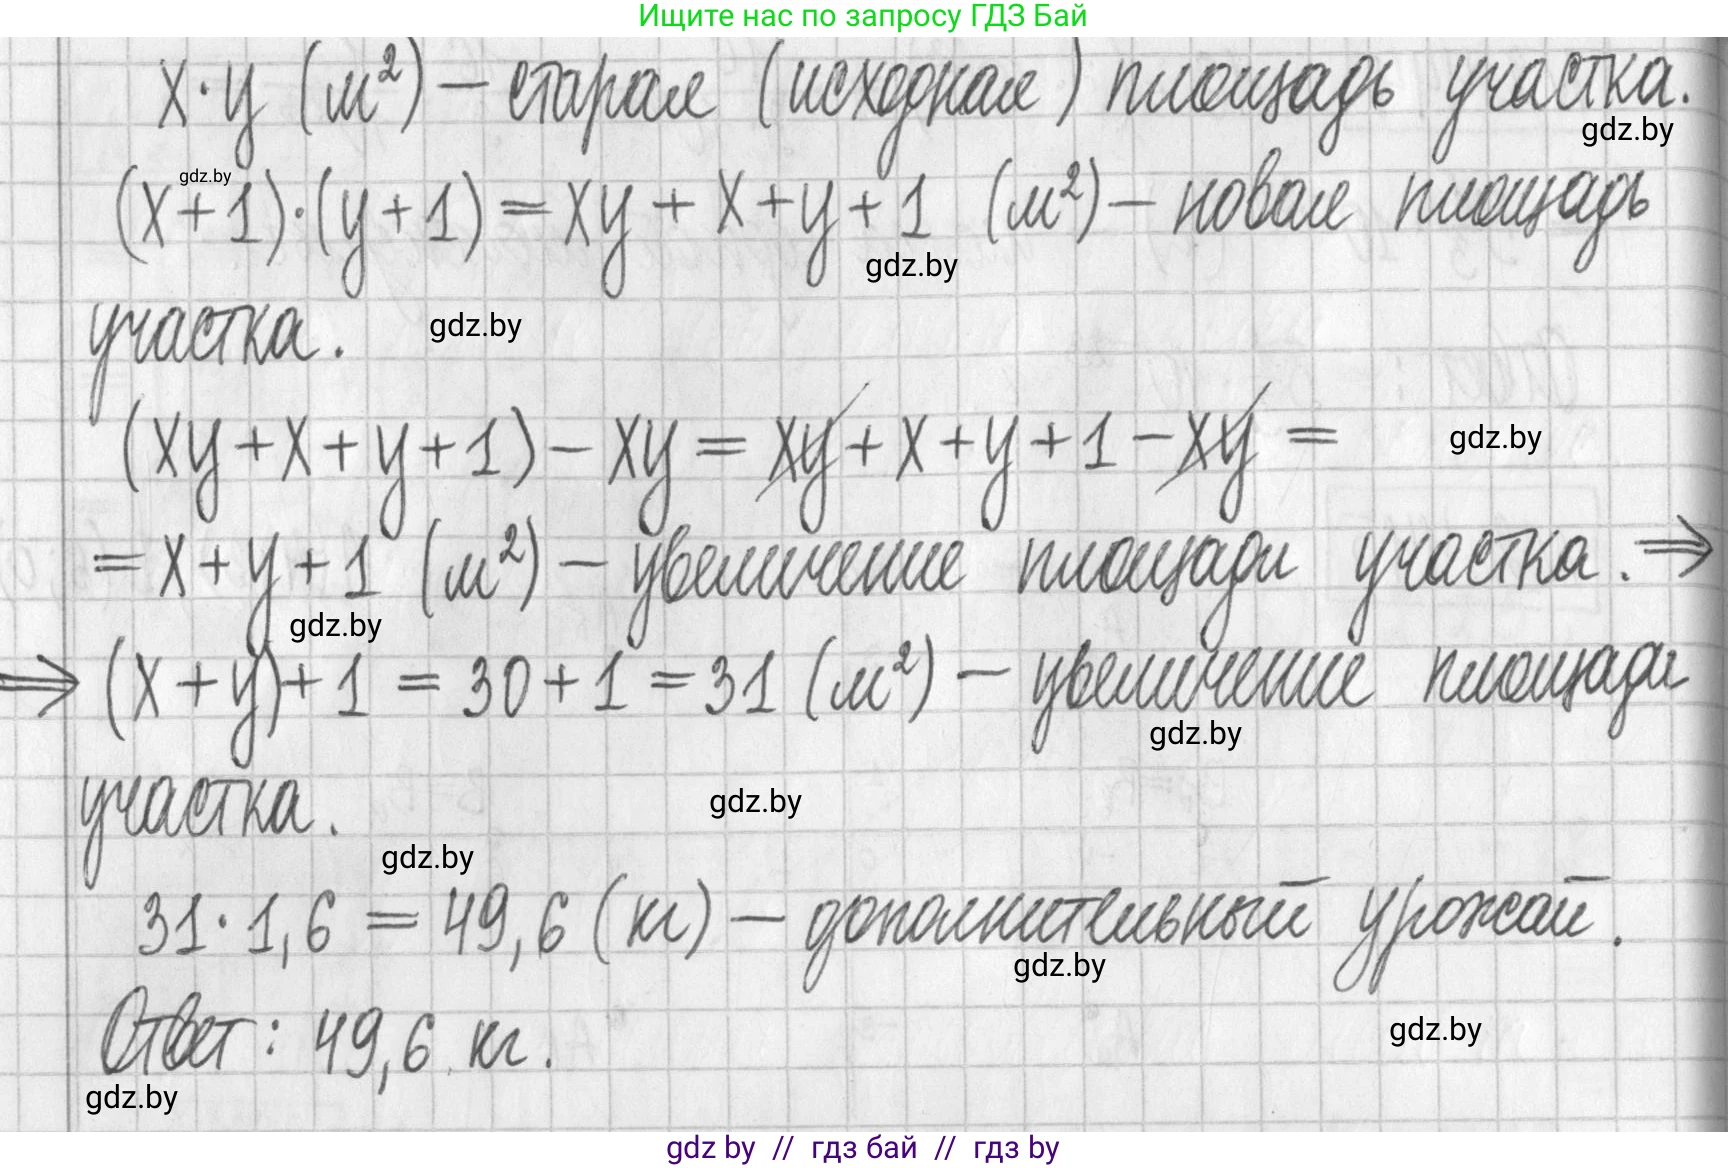 Ищите нас по запросу ГДЗ Бай
x·y (м²) – старая (исходная) площадь участка.
gdz.by
gdz.by
(x+1)·(y+1) = xy + x + y + 1 (м²) – новая площадь
gdz.by
участка.
gdz.by
(xy + x + y + 1) – xy = xy + x + y + 1 – xy =
gdz.by
= x + y + 1 (м²) – увеличение площади участка. ⇒
gdz.by
⇒ (x + y) + 1 = 30 + 1 = 31 (м²) – увеличение площади
gdz.by
участка.
gdz.by
gdz.by
31 · 1,6 = 49,6 (кг) – дополнительный урожай.
gdz.by
Ответ: 49,6 кг.
gdz.by
gdz.by
gdz by // гдз бай // гдз by